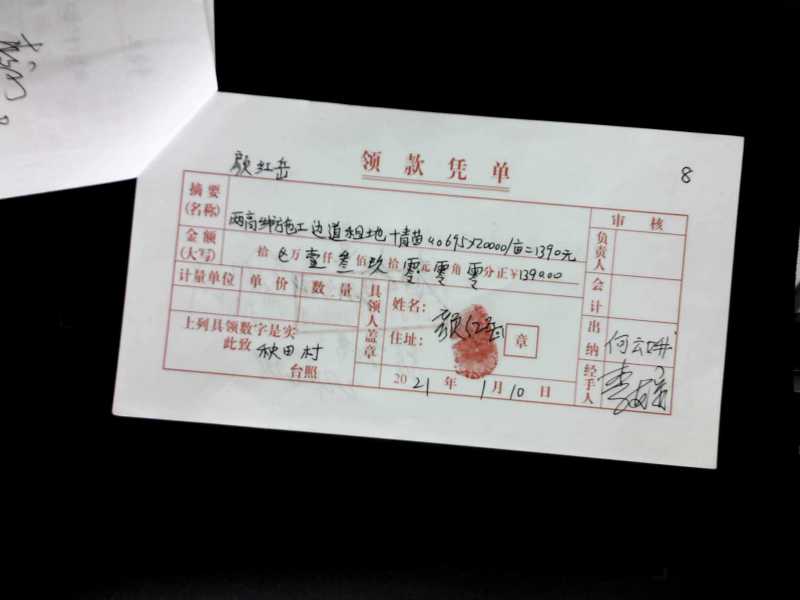 颜红岳
领款凭单
8
摘要(名称)
两高绑施工边道租地+青苗0.0695×20000/亩=1390元
审核
金额(大写)
拾万壹仟叁佰玖拾零元零角零分正¥1390.00
负责人
计量单位 单价 数量
具领人盖章
姓名:
颜红岳
住址:
章
会计
上列具领数字是实
此致 秋田村
台照
2021年1月10日
出纳
何云
经手人